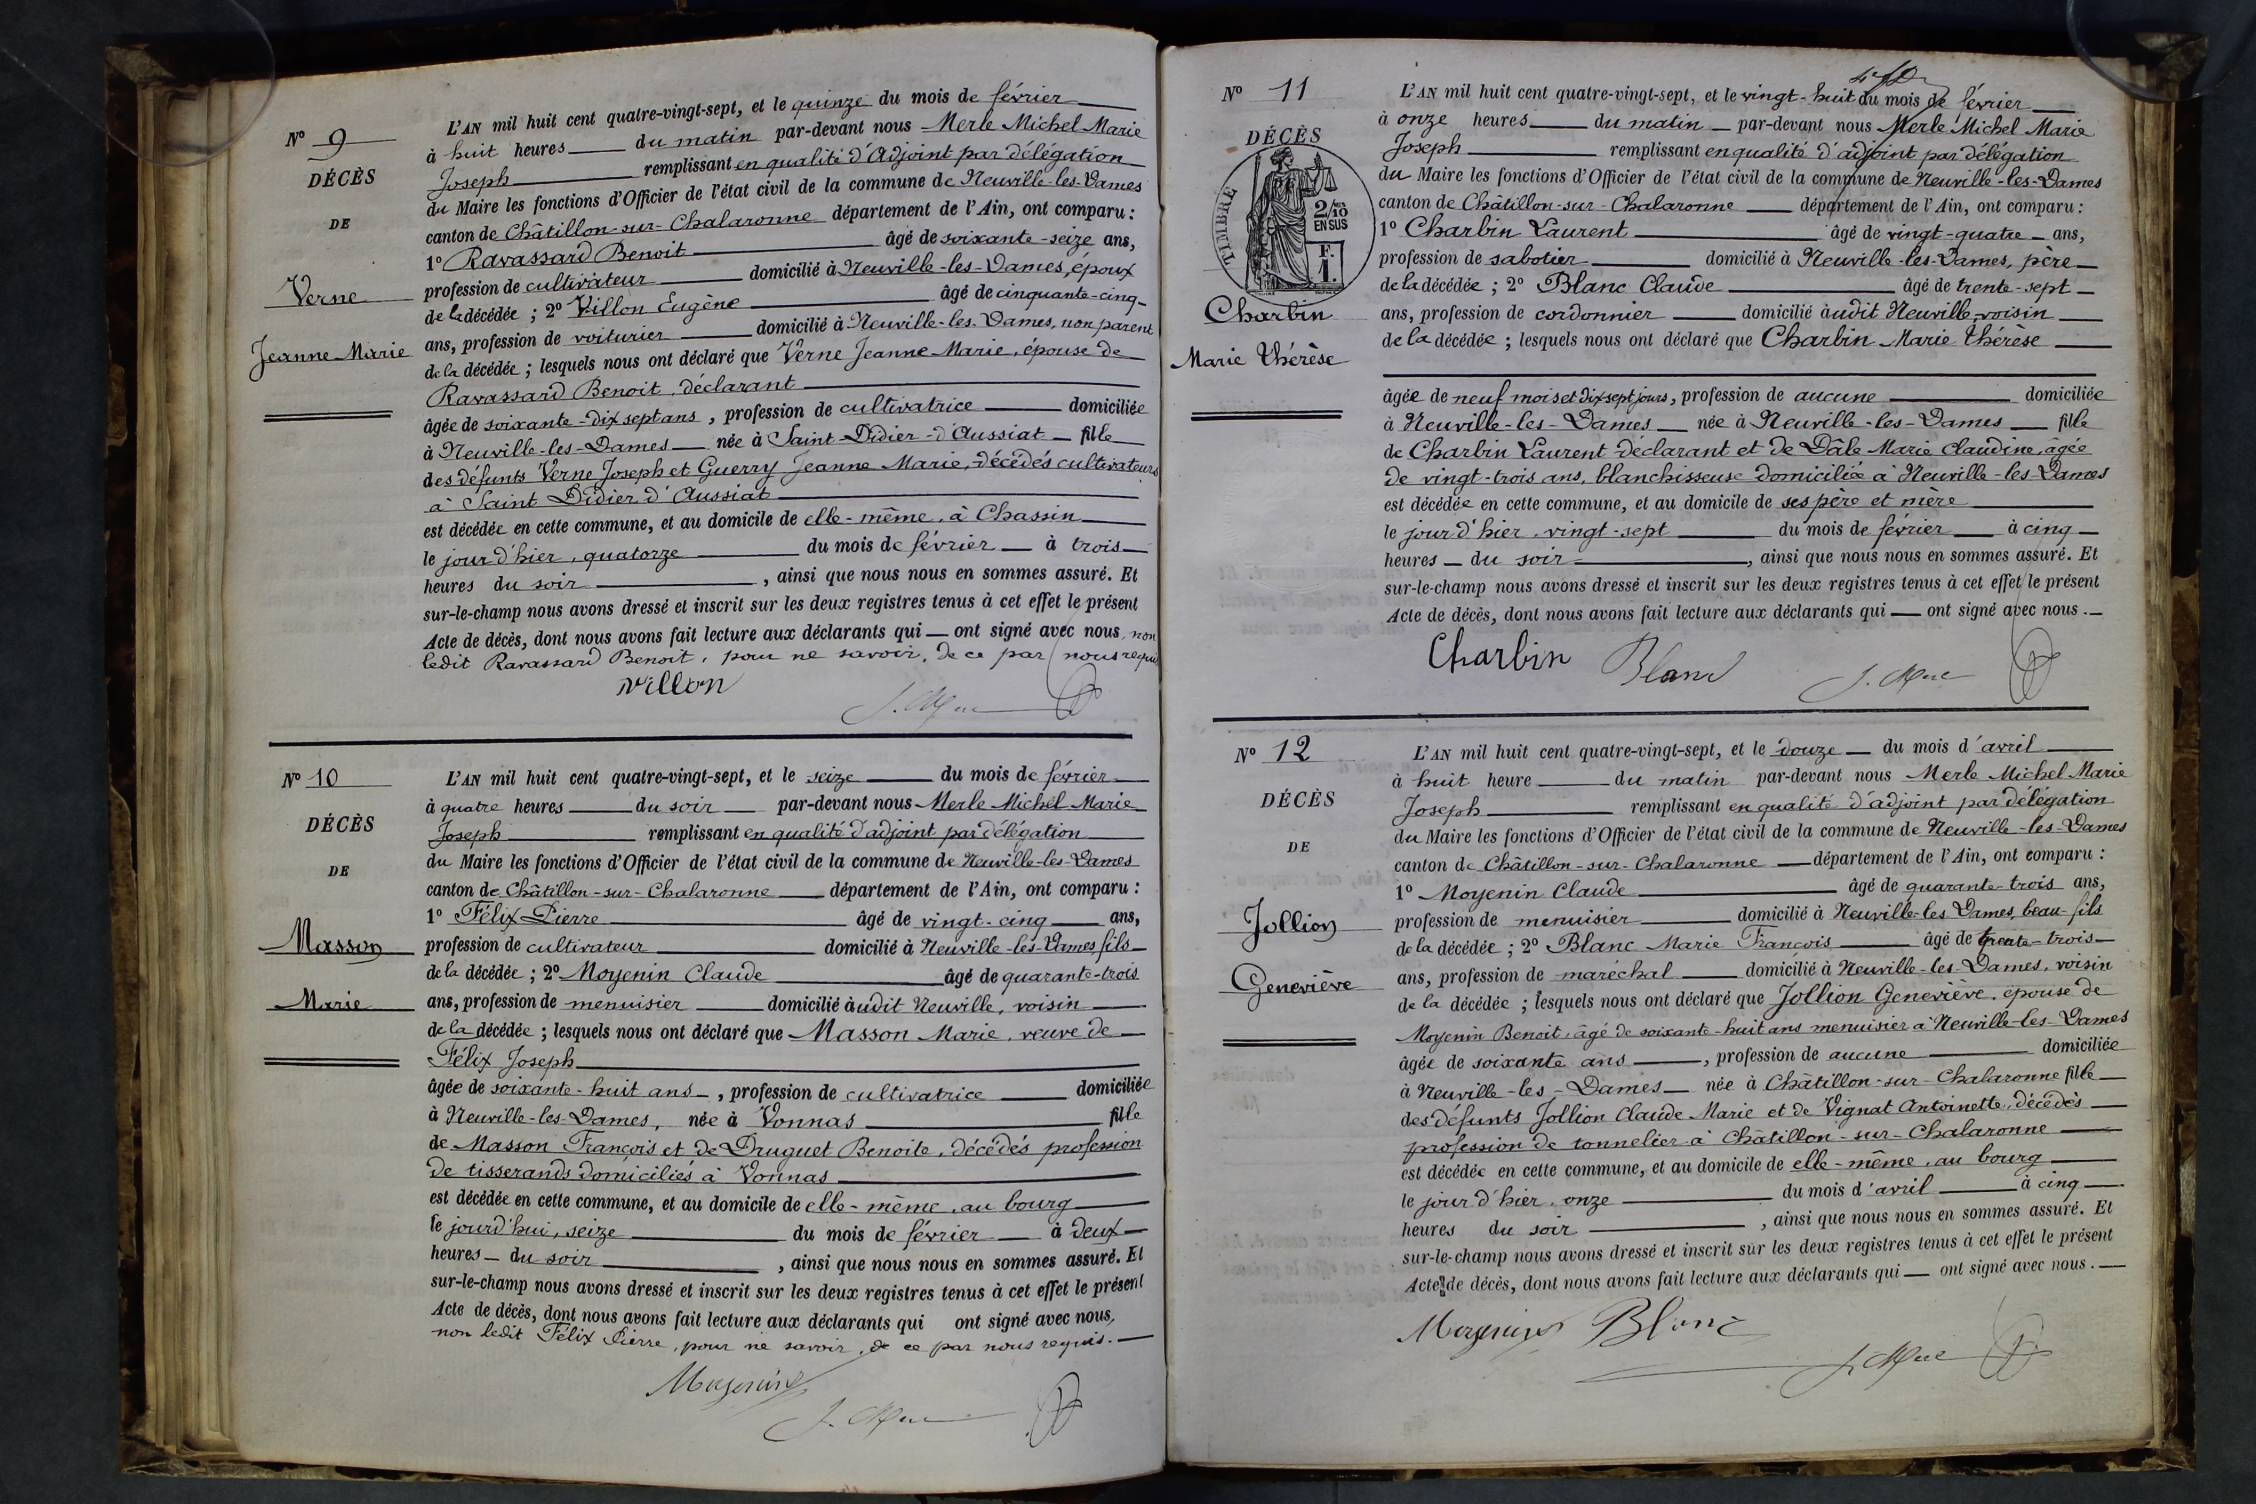 N° 9
DÉCÈS
DE
Verne
Jeanne Marie
L'AN mil huit cent quatre-vingt-sept, et le quinze du mois de février
à huit heures du matin par-devant nous Merle Michel Marie
Joseph remplissant en qualité d'Adjoint par délégation
du Maire les fonctions d'Officier de l'état civil de la commune de Neuville-les-Dames
canton de Châtillon-sur-Chalaronne département de l'Ain, ont comparu :
1° Ravassard Benoit âgé de soixante-seize ans,
profession de cultivateur domicilié à Neuville-les-Dames, époux
de la décédée ; 2° Villon Eugène âgé de cinquante-cinq
ans, profession de voiturier domicilié à Neuville-les-Dames, non parent
de la décédée ; lesquels nous ont déclaré que Verne Jeanne Marie, épouse de
Ravassard Benoit, déclarant
âgée de soixante-dix sept ans, profession de cultivatrice domiciliée
à Neuville-les-Dames née à Saint-Didier-d'Aussiat fille
des défunts Verne Joseph et Guerry Jeanne Marie, décédés cultivateurs
à Saint Didier d'Aussiat
est décédée en cette commune, et au domicile de elle-même, à Chassin
le jour d'hier, quatorze du mois de février à trois
heures du soir , ainsi que nous nous en sommes assuré. Et
sur-le-champ nous avons dressé et inscrit sur les deux registres tenus à cet effet le présent
Acte de décès, dont nous avons fait lecture aux déclarants qui ont signé avec nous, non
ledit Ravassard Benoit, pour ne savoir, de ce par nous requis
Villon
N° 10
DÉCÈS
DE
Masson
Marie
L'AN mil huit cent quatre-vingt-sept, et le seize du mois de février
à quatre heures du soir par-devant nous Merle Michel Marie
Joseph remplissant en qualité d'adjoint par délégation
du Maire les fonctions d'Officier de l'état civil de la commune de Neuville-les-Dames
canton de Châtillon-sur-Chalaronne département de l'Ain, ont comparu :
1° Félix Pierre âgé de vingt-cinq ans,
profession de cultivateur domicilié à Neuville-les-Dames, fils
de la décédée ; 2° Moyenin Claude âgé de quarante-trois
ans, profession de menuisier domicilié àudit Neuville, voisin
de la décédée ; lesquels nous ont déclaré que Masson Marie, veuve de
Félix Joseph
âgée de soixante-huit ans, profession de cultivatrice domiciliée
à Neuville-les-Dames, née à Vonnas fille
de Masson François et de Druguet Benoite, décédés profession
de tisserands domiciliés à Vonnas
est décédée en cette commune, et au domicile de elle-même, au bourg
le jourd'hui, seize du mois de février à deux
heures du soir , ainsi que nous nous en sommes assuré. Et
sur-le-champ nous avons dressé et inscrit sur les deux registres tenus à cet effet le présent
Acte de décès, dont nous avons fait lecture aux déclarants qui ont signé avec nous,
non ledit Félix Pierre, pour ne savoir, de ce par nous requis.
Moyenin
N° 11
DÉCÈS
TIMBRE
2/10
EN SUS
F.
1.
Charbin
Marie Thérèse
L'AN mil huit cent quatre-vingt-sept, et le vingt-huit du mois de février
à onze heures du matin par-devant nous Merle Michel Marie
Joseph remplissant en qualité d'adjoint par délégation
du Maire les fonctions d'Officier de l'état civil de la commune de Neuville-les-Dames
canton de Châtillon-sur-Chalaronne département de l'Ain, ont comparu :
1° Charbin Laurent âgé de vingt-quatre ans,
profession de sabotier domicilié à Neuville-les-Dames, père
de la décédée ; 2° Blanc Claude âgé de trente-sept
ans, profession de cordonnier domicilié àudit Neuville, voisin
de la décédée ; lesquels nous ont déclaré que Charbin Marie Thérèse
âgée de neuf mois et dix sept jours, profession de aucune domiciliée
à Neuville-les-Dames née à Neuville-les-Dames fille
de Charbin Laurent déclarant et de Dâle Marie Claudine, âgée
de vingt-trois ans, blanchisseuse domiciliée à Neuville-les-Dames
est décédée en cette commune, et au domicile de ses père et mère
le jour d'hier, vingt-sept du mois de février à cinq
heures du soir , ainsi que nous nous en sommes assuré. Et
sur-le-champ nous avons dressé et inscrit sur les deux registres tenus à cet effet le présent
Acte de décès, dont nous avons fait lecture aux déclarants qui ont signé avec nous.
Charbin Blanc
N° 12
DÉCÈS
DE
Jollion
Geneviève
L'AN mil huit cent quatre-vingt-sept, et le douze du mois d'avril
à huit heure du matin par-devant nous Merle Michel Marie
Joseph remplissant en qualité d'adjoint par délégation
du Maire les fonctions d'Officier de l'état civil de la commune de Neuville-les-Dames
canton de Châtillon-sur-Chalaronne département de l'Ain, ont comparu :
1° Moyenin Claude âgé de quarante-trois ans,
profession de menuisier domicilié à Neuville-les-Dames, beau-fils
de la décédée ; 2° Blanc Marie François âgé de trente-trois
ans, profession de maréchal domicilié à Neuville-les-Dames, voisin
de la décédée ; lesquels nous ont déclaré que Jollion Geneviève, épouse de
Moyenin Benoit, âgé de soixante-huit ans menuisier à Neuville-les-Dames
âgée de soixante ans , profession de aucune domiciliée
à Neuville-les-Dames née à Châtillon-sur-Chalaronne fille
des défunts Jollion Claude Marie et de Vignat Antoinette, décédés
profession de tonnelier à Châtillon-sur-Chalaronne
est décédée en cette commune, et au domicile de elle-même, au bourg
le jour d'hier, onze du mois d'avril à cinq
heures du soir , ainsi que nous nous en sommes assuré. Et
sur-le-champ nous avons dressé et inscrit sur les deux registres tenus à cet effet le présent
Acte de décès, dont nous avons fait lecture aux déclarants qui ont signé avec nous.
Moyenin Blanc